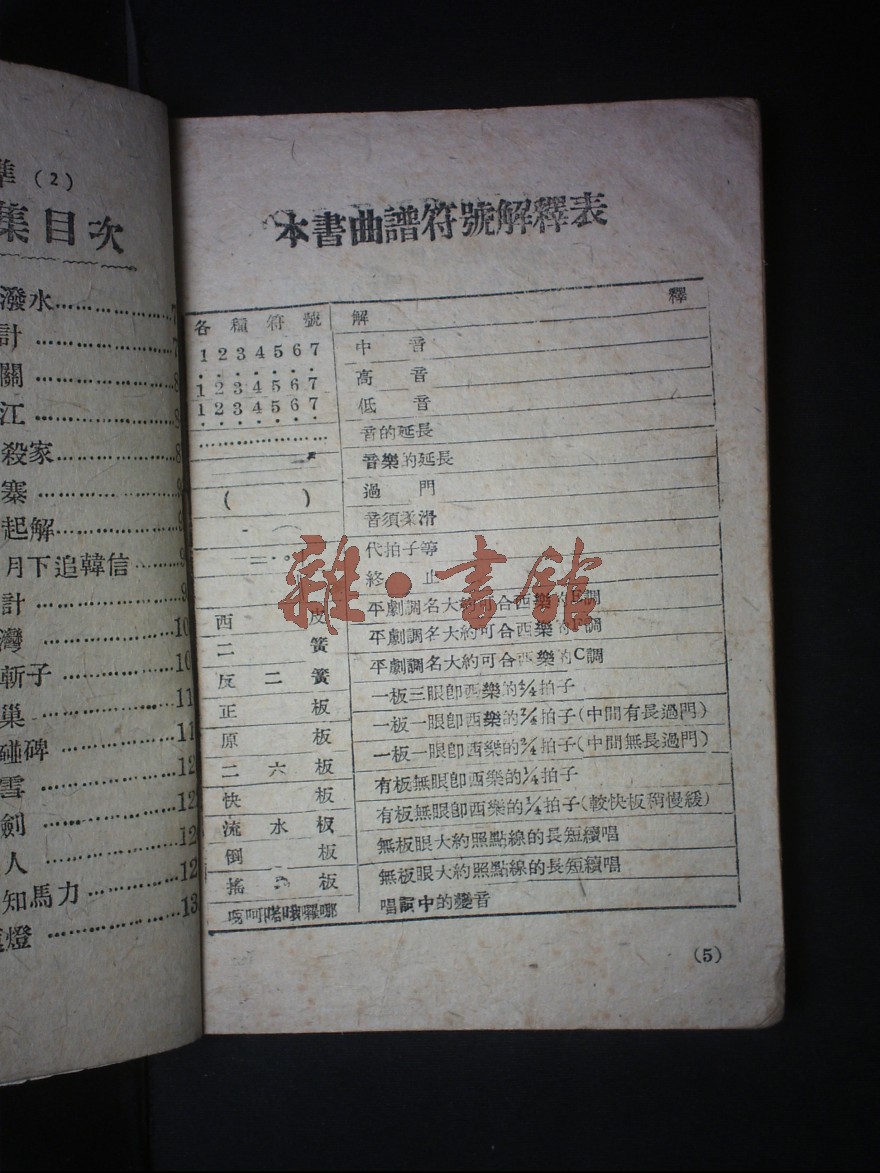 準(2)
集目次
潑水………………7
計………………7
關………………8
江………………8
殺家………………8
寨………………9
起解………………9
月下追韓信………9
計………………9
灣………………10
斬子………………10
巢………………11
碰碑………………11
雪………………12
劍………………12
人………………12
知馬力………………12
燈………………13
本書曲譜符號解釋表
各種符號 解釋
1234567 中音
1234567 高音
1234567 低音
………………… 音的延長
音樂的延長
( ) 過門
音須柔滑
代拍子等
終止
西皮 平劇調名大約可合西樂的F調
二簧 平劇調名大約可合西樂的F調
反二簧 平劇調名大約可合西樂的C調
正板 一板三眼卽西樂的4/4拍子
原板 一板一眼卽西樂的2/4拍子(中間有長過門)
二六板 一板一眼卽西樂的2/4拍子(中間無長過門)
快板 有板無眼卽西樂的1/4拍子
流水板 有板無眼卽西樂的1/4拍子(較快板稍慢緩)
倒板 無板眼大約照點線的長短續唱
搖板 無板眼大約照點線的長短續唱
唱詞中的變音
(5)
雜·書館